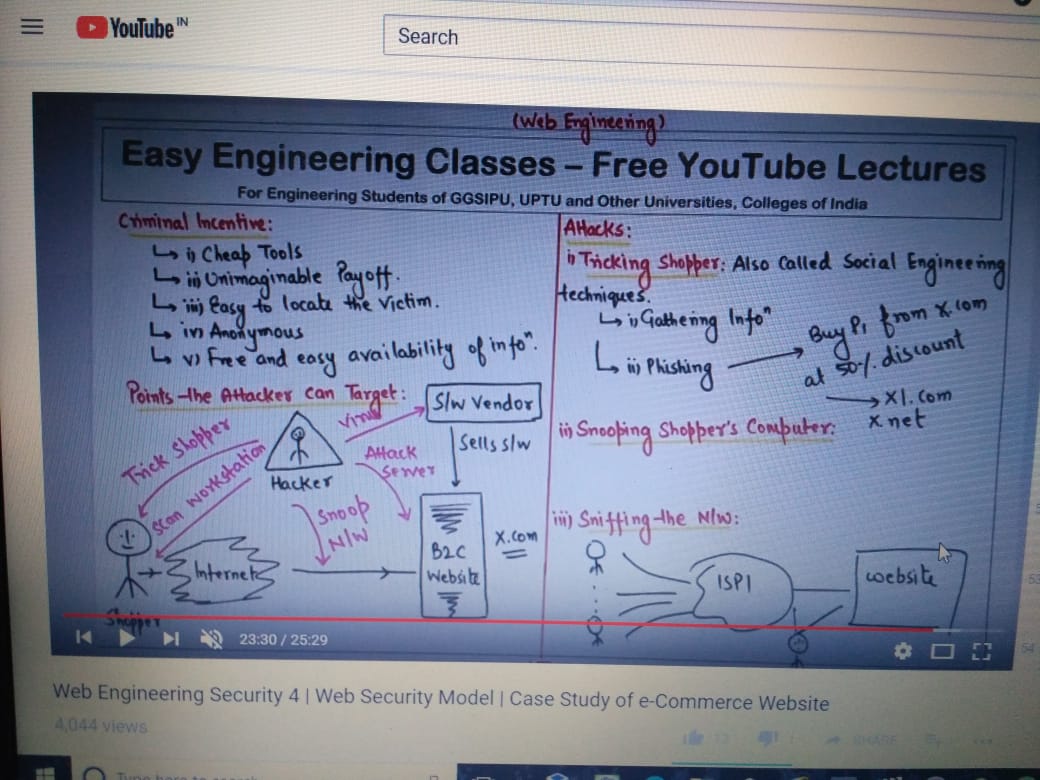 YouTube IN
Search
(Web Engineering)
Easy Engineering Classes – Free YouTube Lectures
For Engineering Students of GGSIPU, UPTU and Other Universities, Colleges of India
Criminal Incentive:
i) Cheap Tools
ii) Unimaginable Payoff.
iii) Easy to locate the Victim.
iv) Anonymous
v) Free and easy availability of infoⁿ.
Points the Attacker can Target:
S/w Vendor
Virus
Sells s/w
Trick Shopper
Scan Workstation
Hacker
Attack
Server
Snoop
N/W
Internet
B2C
Website
X.com
Shopper
Attacks:
i) Tricking Shopper: Also Called Social Engineering
techniques.
i) Gathering Infoⁿ
ii) Phishing
Buy P1 from x.com
at 50% discount
x1.com
x.net
ii) Snooping Shopper's Computer:
iii) Sniffing the N/W:
ISP1
website
23:30 / 25:29
Web Engineering Security 4 | Web Security Model | Case Study of e-Commerce Website
4,044 views
SHARE
53
54